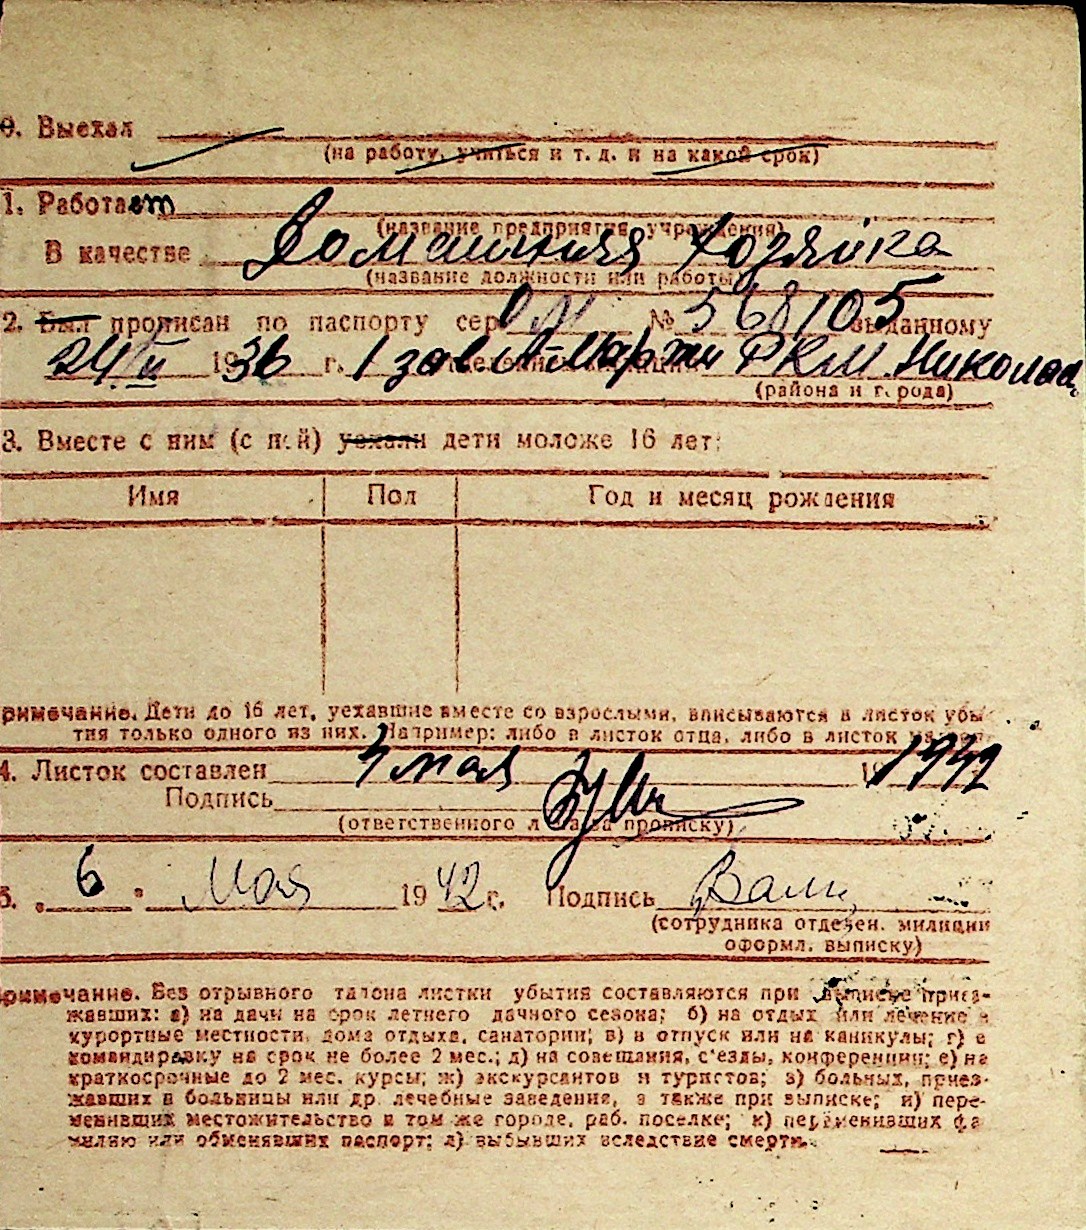 0. Выехал
(на работу, учиться и т. д. и на какой срок)
1. Работает
(название предприятия, учреждения)
В качестве Домашняя хозяйка
(название должности или работы)
2. Был прописан по паспорту сер № 568105 выданному
24/II 1936 г. РКМ. Николаев
(района и города)
3. Вместе с ним (с ней) уехали дети моложе 16 лет:
Имя Пол Год и месяц рождения
римечание. Дети до 16 лет, уехавшие вместе со взрослыми, вписываются в листок убы-
тия только одного из них. Например: либо в листок отца, либо в листок
4. Листок составлен 4 мая 19 1942
Подпись
(ответственного за прописку)
5. „6" Мая 1942 г. Подпись
(сотрудника отделен. милиции
оформл. выписку)
римечание. Без отрывного талона листки убытия составляются при выписке приез-
жавших: а) на дачи на срок летнего дачного сезона; б) на отдых или лечение в
курортные местности, дома отдыха, санатории; в) в отпуск или на каникулы; г) в
командировку на срок не более 2 мес.; д) на совещания, с'езды, конференции; е) на
краткосрочные до 2 мес. курсы; ж) экскурсантов и туристов; з) больных, приез-
жавших в больницы или др. лечебные заведения, а также при выписке; и) пере-
менивших местожительство в том же городе, раб. поселке; к) переменивших фа
милию или обменявших паспорт; л) выбывших вследствие смерти.